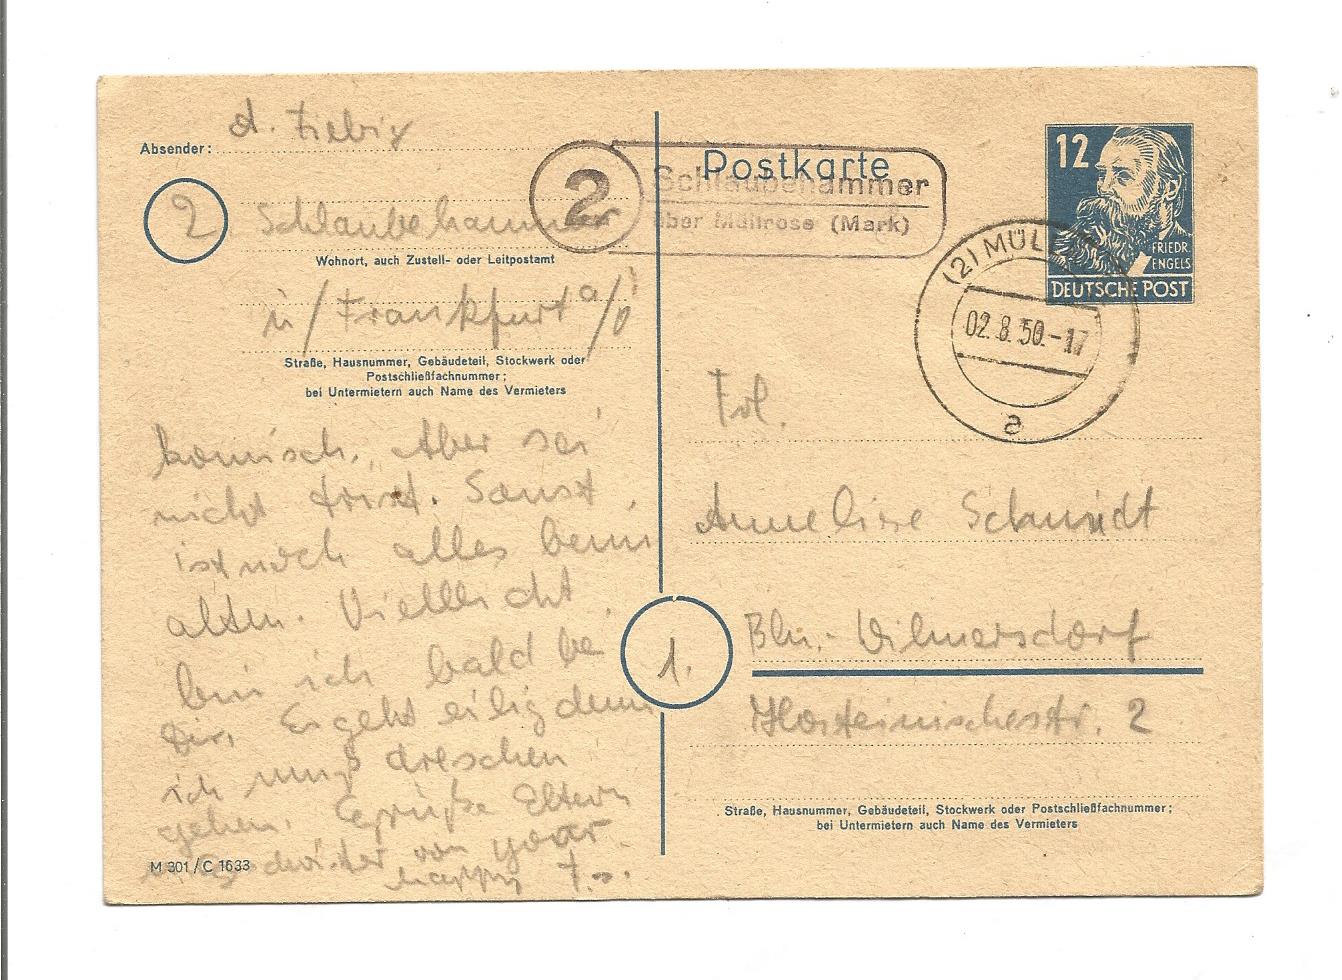 Absender: A. Fiebig
2
Schlaubehammer
Wohnort, auch Zustell- oder Leitpostamt
ü/Frankfurt a/O
Straße, Hausnummer, Gebäudeteil, Stockwerk oder
Postschließfachnummer;
bei Untermietern auch Name des Vermieters
komisch. Aber sei
nicht trist. Sonst
ist noch alles beim
alten. Vielleicht
bin ich bald bei
Dir. Es geht eilig denn
ich muß dreschen
gehen. Grüße Eltern
von your
happy
M 301/C 1633
Postkarte
2
Schlaubehammer
über Müllrose (Mark)
12
FRIEDR
ENGELS
DEUTSCHE POST
(2) MÜLLROSE
02.8.50.-17
a
Frl.
Anneliese Schmidt
1.
Bln.-Wilmersdorf
Holsteinischestr. 2
Straße, Hausnummer, Gebäudeteil, Stockwerk oder Postschließfachnummer;
bei Untermietern auch Name des Vermieters